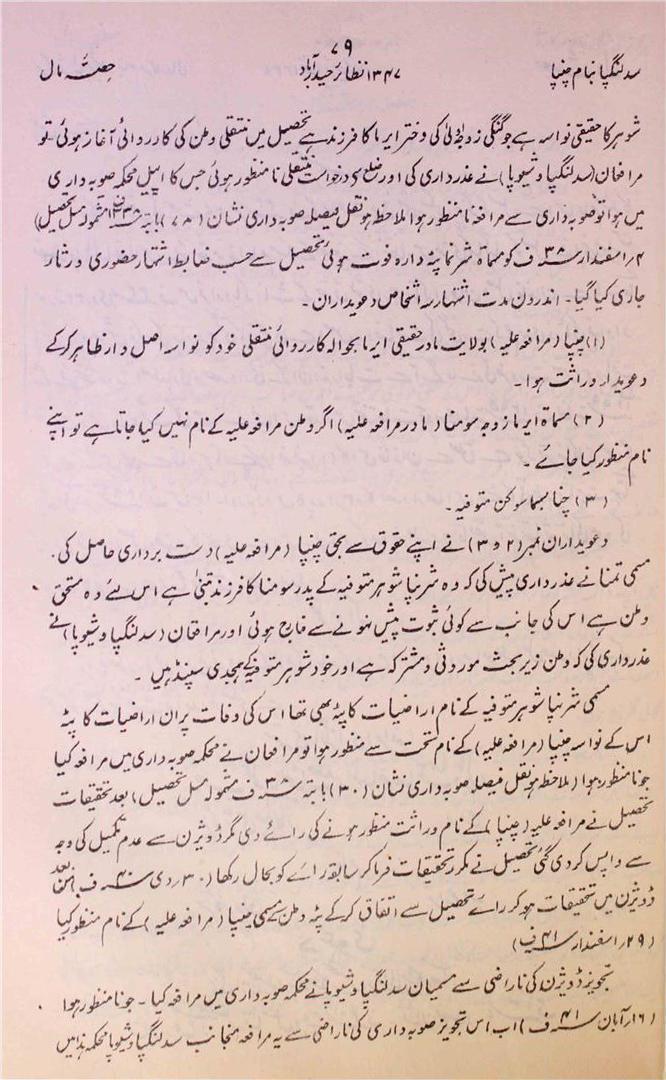 ۷۹
سدلنگپا بنام چنپا ۱۳۴۷ نظائر حیدرآباد حصۂ مال
شوہر کا حقیقی نواسہ ہے جو گنگی زوجۂ اولیٰ کی دختر ایرما کا فرزند ہے تحصیل میں منتقلی وطن کی کارروائی آغاز ہوئی۔ تو
مرافعان (سدلنگپا و شیوپا) نے عذرداری کی اور ضلع درخواست منتقلی نامنظور ہوئی جس کا اپیل محکمہ صوبہ داری
میں ہوا تو صوبہ داری سے مرافعہ نامنظور ہوا ملاحظہ ہو نقل فیصلہ صوبہ داری نشان (۷۸) بابتہ ۱۳۳۸ف مشمولہ مثل تحصیل)
۴؍ اسفندار ۳۸ ف کو مسماۃ شرنما پٹہ دارہ فوت ہوئی تحصیل سے حسب ضابطہ اشتہار حضوری ورثاء
جاری کیا گیا۔ اندرون مدت اشتہار سہ اشخاص دعویداران۔
(۱) چنپا (مرافعہ علیہ) بولایت مادر حقیقی ایرما بحوالہ کارروائی منتقلی خود کو نواسہ اصل دار ظاہر کر کے
دعویدار وراثت ہوا۔
(۲) مسماۃ ایرما زوجہ سومنا (مادر مرافعہ علیہ) اگر وطن مرافعہ علیہ کے نام نہیں کیا جاتا ہے تو اپنے
نام منظور کیا جائے۔
(۳) چنا بسما سوکن متوفیہ۔
دعویداران نمبر (۲ و ۳) نے اپنے حقوق سے بحق چنپا (مرافعہ علیہ) دست برداری حاصل کی۔
مسمی تمنا نے عذرداری پیش کی کہ وہ شرنپا شوہر متوفیہ کے پدر سومنا کا فرزند تبنیٰ ہے اس لئے وہ مستحق
وطن ہے اس کی جانب سے کوئی ثبوت پیش نہونے سے خارج ہوئی اور مرافعان (سدلنگپا و شیوپا) نے
عذرداری کی کہ وطن زیر بحث موروثی و مشترکہ ہے اور خود شوہر متوفیہ کے ہمجدی سپنڈ ہیں۔
مسمی شرنپا شوہر متوفیہ کے نام اراضیات کا پٹہ بھی تھا اس کی وفات پر ان اراضیات کا پٹہ
اس کے نواسہ چنپا (مرافعہ علیہ) کے نام تحت سے منظور ہوا تو مرافعان نے محکمہ صوبہ داری میں مرافعہ کیا
جو نامنظور ہوا (ملاحظہ ہو نقل فیصلہ صوبہ داری نشان (۳۰) بابتہ ۳۸ ف مشمولہ مثل تحصیل) بعد تحقیقات
تحصیل نے مرافعہ علیہ (چنپا) کے نام وراثت منظور ہونے کی رائے دی مگر ڈویژن سے عدم تکمیل کی وجہ
سے واپس کر دی گئی تحصیل نے مکرر تحقیقات فرما کر سابقہ رائے کو بحال رکھا (۳۰؍ دی ۴۰ ف)
ڈویژن میں تحقیقات ہو کر رائے تحصیل سے اتفاق کر کے پٹہ وطن مسمی چنپا (مرافعہ علیہ) کے نام منظور کیا
(۲۹؍ اسفندار ۴۱ ف)
تجویز ڈویژن کی ناراضی سے مسمیان سدلنگپا و شیوپا نے محکمہ صوبہ داری میں مرافعہ کیا۔ جو نامنظور ہوا
(۱۶؍ آبان ۴۱ ف) اب اس تجویز صوبہ داری کی ناراضی سے یہ مرافعہ منجانب سدلنگپا و شیوپا محکمہ ہذا میں